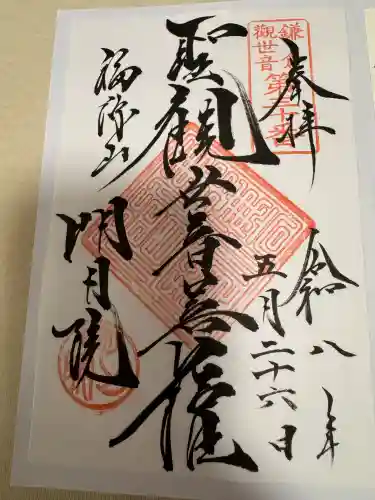 奉拝
鎌倉
観世音第三十番
令和八年
五月二十六日
聖観世音菩薩
福源山
明月院